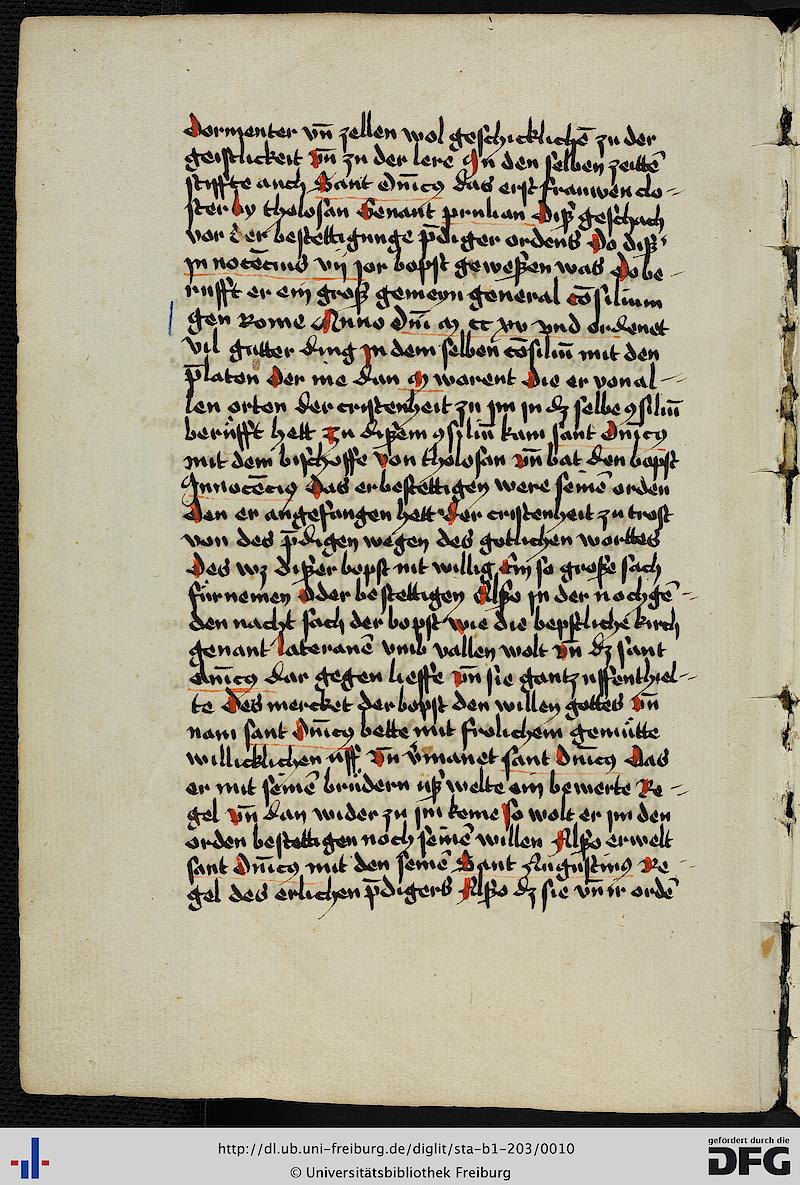 Dormenter vn̄ zellen wol geschicklichē zu der
geistlickeit vn̄ zu der lere In den selben zeittē
stiffte auch Sant Dn̄icꝰ das erst frauwen clo-
ster by tholosan Genant prulian Diß geschach
vor der bestettigunge p̄diger ordens Do diß
in nocēcius vij jor bopst geweßen was Do be-
rufft er ein groß gemeyn general cōsilium
gen Rome Anno Dn̄i M CC xv vnd ordenet
vil gutter ding in dem selben cōsiliū mit den
p̄laten Der me dan M warent Die er von al-
len orten der cristenheit zu im in dz selbe ꝯsiliū
berůfft hett Zu dißem ꝯsiliū kam sant Dn̄icꝰ
mit dem bischoffe von tholosan vn̄ bat den bopst
Innocēciꝰ Das er bestettigen were seinē orden
Den er angefangen hett Der cristenheit zu trost
von des p̄digen wegen des gotlichen worttes
Des wz dißer bopst nit willig Ein so große sach
fürnemen Oder bestettigen Alßo in der nochgē-
den nacht sach der bopst wie die bepstliche kirch
genant lateranē vmb vallen wolt vn̄ dz sant
Dn̄icꝰ dar gegen lieffe vn̄ sie gantz uffenthiel-
te Des mercket der bopst den willen gottes vn̄
nam sant Dn̄icꝰ bette mit frolichem gemütte
willicklichen uff Vn̄ v̄manet sant Dn̄icꝰ Das
er mit seinē brüdern uß welte ein bewerte Re-
gel vn̄ dan wider zu im keme so wolt er im den
orden bestettigen noch seinē willen Alßo erwelt
sant Dn̄icꝰ mit den seinē Sant Augustinꝰ Re-
gel des erlichen p̄digers Alßo dz sie vn̄ ir ordē
http://dl.ub.uni-freiburg.de/diglit/sta-b1-203/0010
© Universitätsbibliothek Freiburg
gefördert durch die
DFG